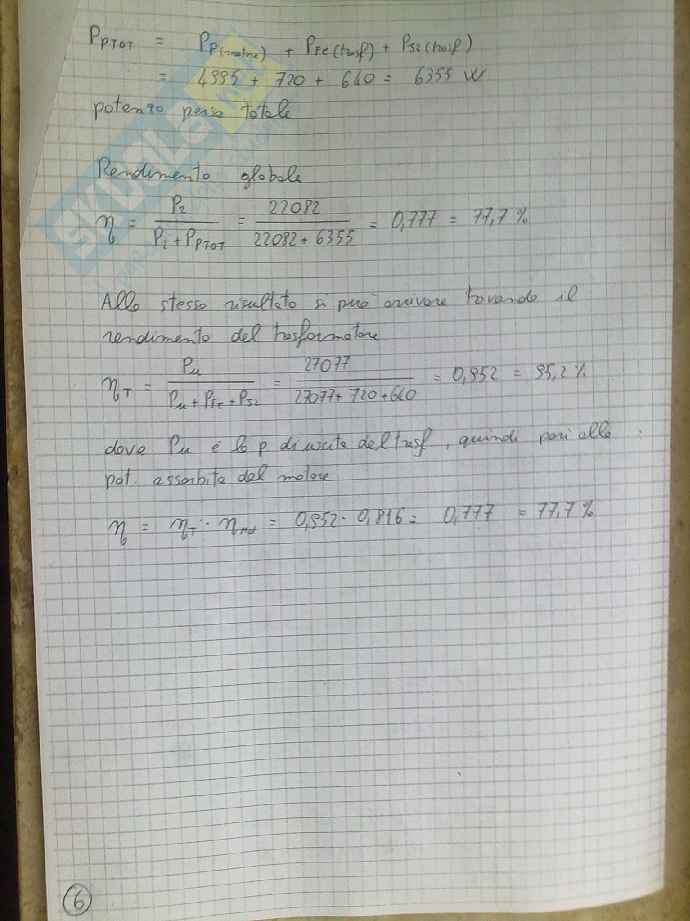 P_PTOT = P_P(motore) + P_Fe(trasf) + P_S2(trasf)
= 4995 + 720 + 640 = 6355 W
potenza persa totale
Rendimento globale
η = P_2 / (P_2 + P_PTOT) = 22082 / (22082 + 6355) = 0,777 = 77,7 %
Allo stesso risultato si può arrivare trovando il
rendimento del trasformatore
η_T = P_u / (P_u + P_Fe + P_S2) = 27077 / (27077 + 720 + 640) = 0,952 = 95,2 %
dove P_u è la p di uscita del trasf, quindi pari alla
pot. assorbita del motore
η = η_T · η_mot = 0,952 · 0,816 = 0,777 = 77,7 %
6